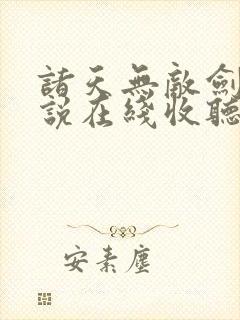 諸天無敵劍
說在綫收聽
安素塵